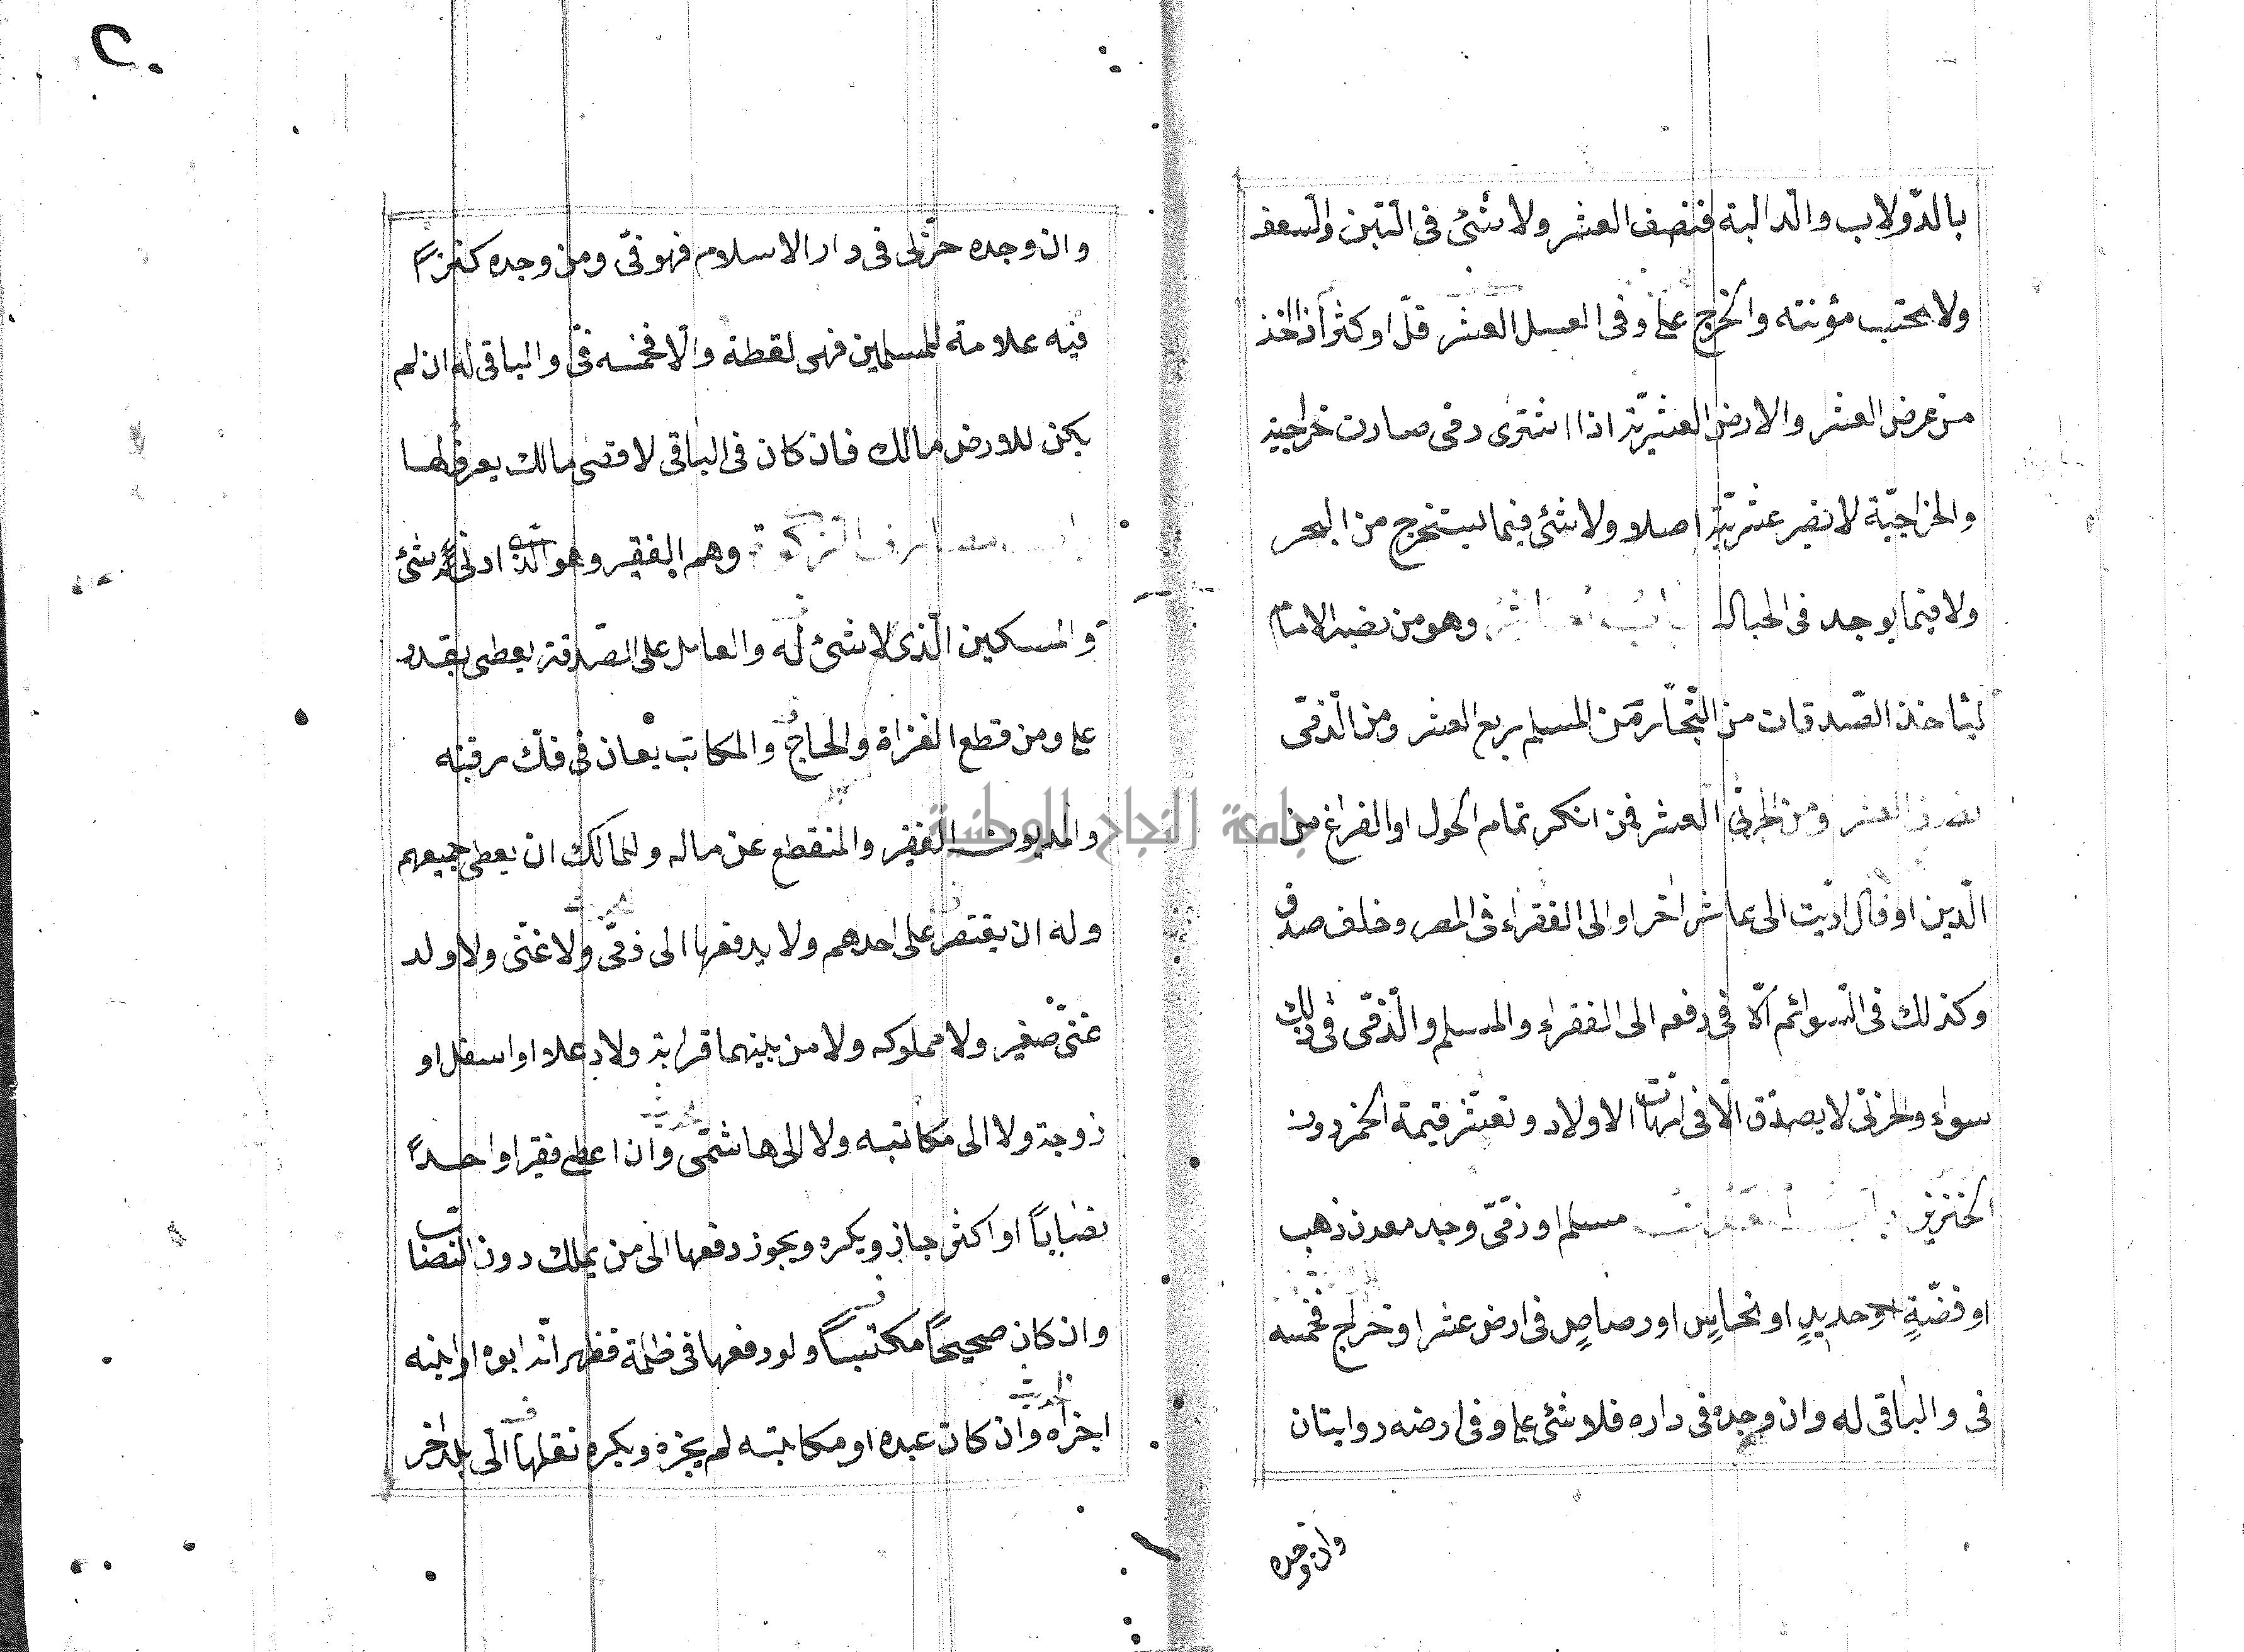 بالدّولاب والدالية فنصف العشر ولا شئ فى التّبن والسعف
ولا يحتسب مؤنته والخرج عليه وفى العسل العشر قلّ او كثر اذا اخذ
من عرض العشر والارض العشريّة اذا اشترى ذمى صارت خراجية
والخراجيّة لا تصير عشريّة اصلا ولا شئ فيما يستخرج من البحر
ولا فيما يوجد فى الجبال باب العاشر وهو من نصبه الامام
ليأخذ الصّدقات من التّجّار من المسلم ربع العشر ومن الذّمّى
نصف العشر ومن الحربىّ العشر فمن انكر تمام الحول او الفراغ من
الدّين او قال اديت الى عاشر اخر او الى الفقراء فى المصر وحلف صدق
وكذلك فى السّوائم الّا فى دفعه الى الفقراء والمسلم والذّمّى فى ذلك
سواء والحربى لا يصدّق الّا فى امّهات الاولاد وتعشر قيمة الخمر دون
الخنزير باب المعدن مسلم او ذمّىّ وجد معدن ذهب
او فضّةٍ او حديدٍ او نحاسٍ او رصاصٍ فى ارض عشر او خراج فخمسه
فى والباقى له وان وجده فى داره فلا شئ عليه وفى ارضه روايتان
وان وجده
وان وجده حربى فى دار الاسلام فهو فىّ ومن وجده كنزاً
فيه علامة للمسلمين فهى لقطة والّا فخمسه فىّ والباقى له ان لم
يكن للارض مالك فان كان فى الباقى لاقصى مالك يعرف لها
باب مصارف الزكوة وهم الفقير وهو الّذى له ادنى شئ
والمسكين الّذى لا شئ له والعامل على الصّدقة يعطى بقدر
عمله ومن قطع الغزاة والحاجّ والمكاتب يعان فى فكّ رقبته
والمديون الفقير والمنقطع عن ماله وللمالك ان يعطى جميعهم
وله ان يقتصر على احدهم ولا يدفعها الى ذمّىّ ولا غنّى ولا ولد
غنىّ صغير ولا مملوكه ولا من بينهما قرابة ولاد علا او اسفل او
زوجة ولا الى مكاتبه ولا الى هاشمّى وان اعطى فقيرا واحداً
نصاباً او اكثر جاز ويكره ويجوز دفعها الى من يملك دون النصاب
وان كان صحيحاً مكتسباً ولو دفعها فى ظلمة فظهر انّه ابوه او ابنه
اجزاه وان كان عبده او مكاتبه لم يجزه ويكره نقلها الى بلد اخر
جامعة النجاح الوطنية